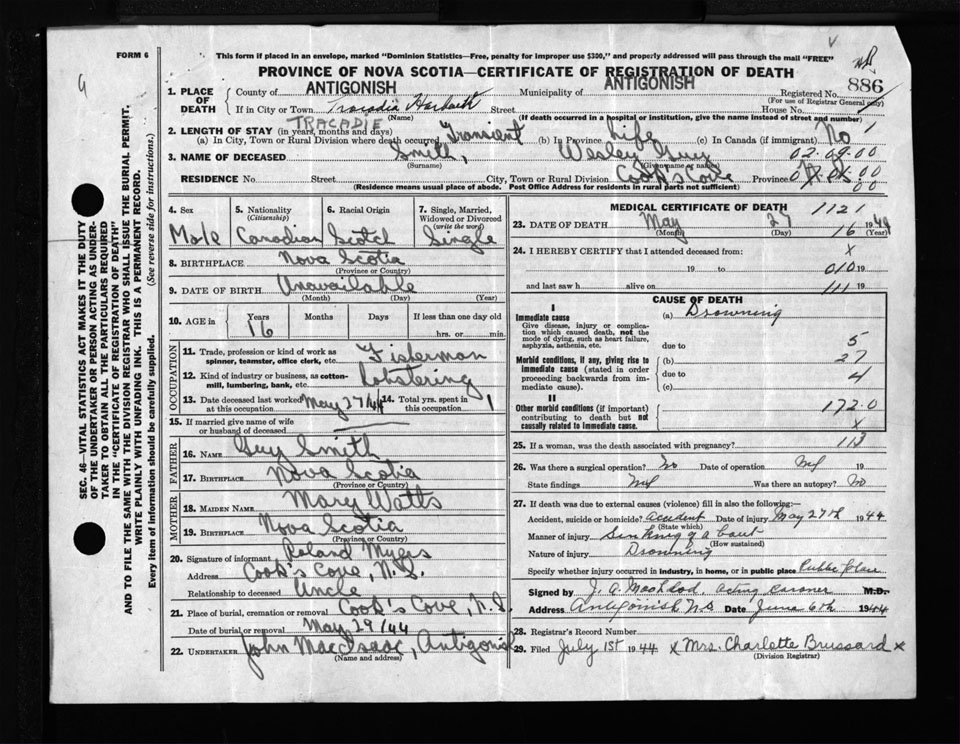 FORM 6
This form if placed in an envelope, marked "Dominion Statistics—Free, penalty for improper use $300," and properly addressed will pass through the mail "FREE"
PROVINCE OF NOVA SCOTIA—CERTIFICATE OF REGISTRATION OF DEATH
886
1. PLACE OF DEATH
County of ANTIGONISH Municipality of ANTIGONISH Registered No.
(For use of Registrar General only)
If in City or Town Tracadie Street House No.
(Name) (If death occurred in a hospital or institution, give name instead of street and number)
TRACADIE
2. LENGTH OF STAY (in years, months and days)
(a) In City, Town or Rural Division where death occurred Transient (b) In Province Life (c) In Canada (if immigrant) No
3. NAME OF DECEASED Smith, Wesley Guy 02.09.00
(Surname) (Given name or names)
RESIDENCE No. Street City, Town or Rural Division Cook's Cove Province
(Residence means usual place of abode. Post Office Address for residents in rural parts not sufficient)
4. SEX Male
5. Nationality (Citizenship) Canadian
6. Racial Origin Scotch
7. Single, Married, Widowed or Divorced (write the word) Single
8. BIRTHPLACE Nova Scotia
(Province or Country)
9. DATE OF BIRTH Unavailable
(Month) (Day) (Year)
10. AGE in Years Months Days If less than one day old
16 hrs. or min.
OCCUPATION
11. Trade, profession or kind of work as spinner, teamster, office clerk, etc. Fisherman
12. Kind of industry or business, as cotton-mill, lumbering, bank, etc. Lobstering
13. Date deceased last worked at this occupation May 27/44 14. Total yrs. spent in this occupation 1
15. If married give name of wife or husband of deceased
FATHER
16. NAME Guy Smith
17. BIRTHPLACE Nova Scotia
(Province or Country)
MOTHER
18. MAIDEN NAME Mary Watts
19. BIRTHPLACE Nova Scotia
(Province or Country)
20. Signature of informant Roland Myers
Address Cook's Cove, N.S.
Relationship to deceased Uncle
21. Place of burial, cremation or removal Cook's Cove, N.S.
Date of burial or removal May 29/44
22. UNDERTAKER John MacIsaac, Antigonish
(Name and address)
MEDICAL CERTIFICATE OF DEATH 1121
23. DATE OF DEATH May 27 1944
(Month) (Day) 16 (Year)
24. I HEREBY CERTIFY that I attended deceased from: x
19 to 010 19
and last saw h alive on 111 19
CAUSE OF DEATH
I
Immediate cause (a) Drowning
Give disease, injury or complication which caused death, not the mode of dying, such as heart failure, asphyxia, asthenia, etc.
due to 5
Morbid conditions, if any, giving rise to immediate cause (stated in order proceeding backwards from immediate cause). (b) 27
due to 4
(c)
II
Other morbid conditions (if important) contributing to death but not causally related to immediate cause. 172.0
x
25. If a woman, was the death associated with pregnancy? 113
26. Was there a surgical operation? No Date of operation 19
State findings Was there an autopsy? No
27. If death was due to external causes (violence) fill in also the following:—
Accident, suicide or homicide? accident Date of injury May 27th 1944
(State which)
Manner of injury Sinking of a boat
(How sustained)
Nature of injury Drowning
Specify whether injury occurred in industry, in home, or in public place Public place
Signed by acting coroner M.D.
Address Antigonish N.S. Date June 6th 1944
28. Registrar's Record Number
29. Filed July 1st 1944 x Mrs. Charlette Brussard x
(Division Registrar)
SEC. 46—VITAL STATISTICS ACT MAKES IT THE DUTY
OF THE UNDERTAKER OR PERSON ACTING AS UNDER-
TAKER TO OBTAIN ALL THE PARTICULARS REQUIRED
IN THE "CERTIFICATE OF REGISTRATION OF DEATH"
AND TO FILE THE SAME WITH THE DIVISION REGISTRAR WHO SHALL ISSUE THE BURIAL PERMIT.
WRITE PLAINLY WITH UNFADING INK. THIS IS A PERMANENT RECORD.
Every item of information should be carefully supplied. (See reverse side for instructions.)